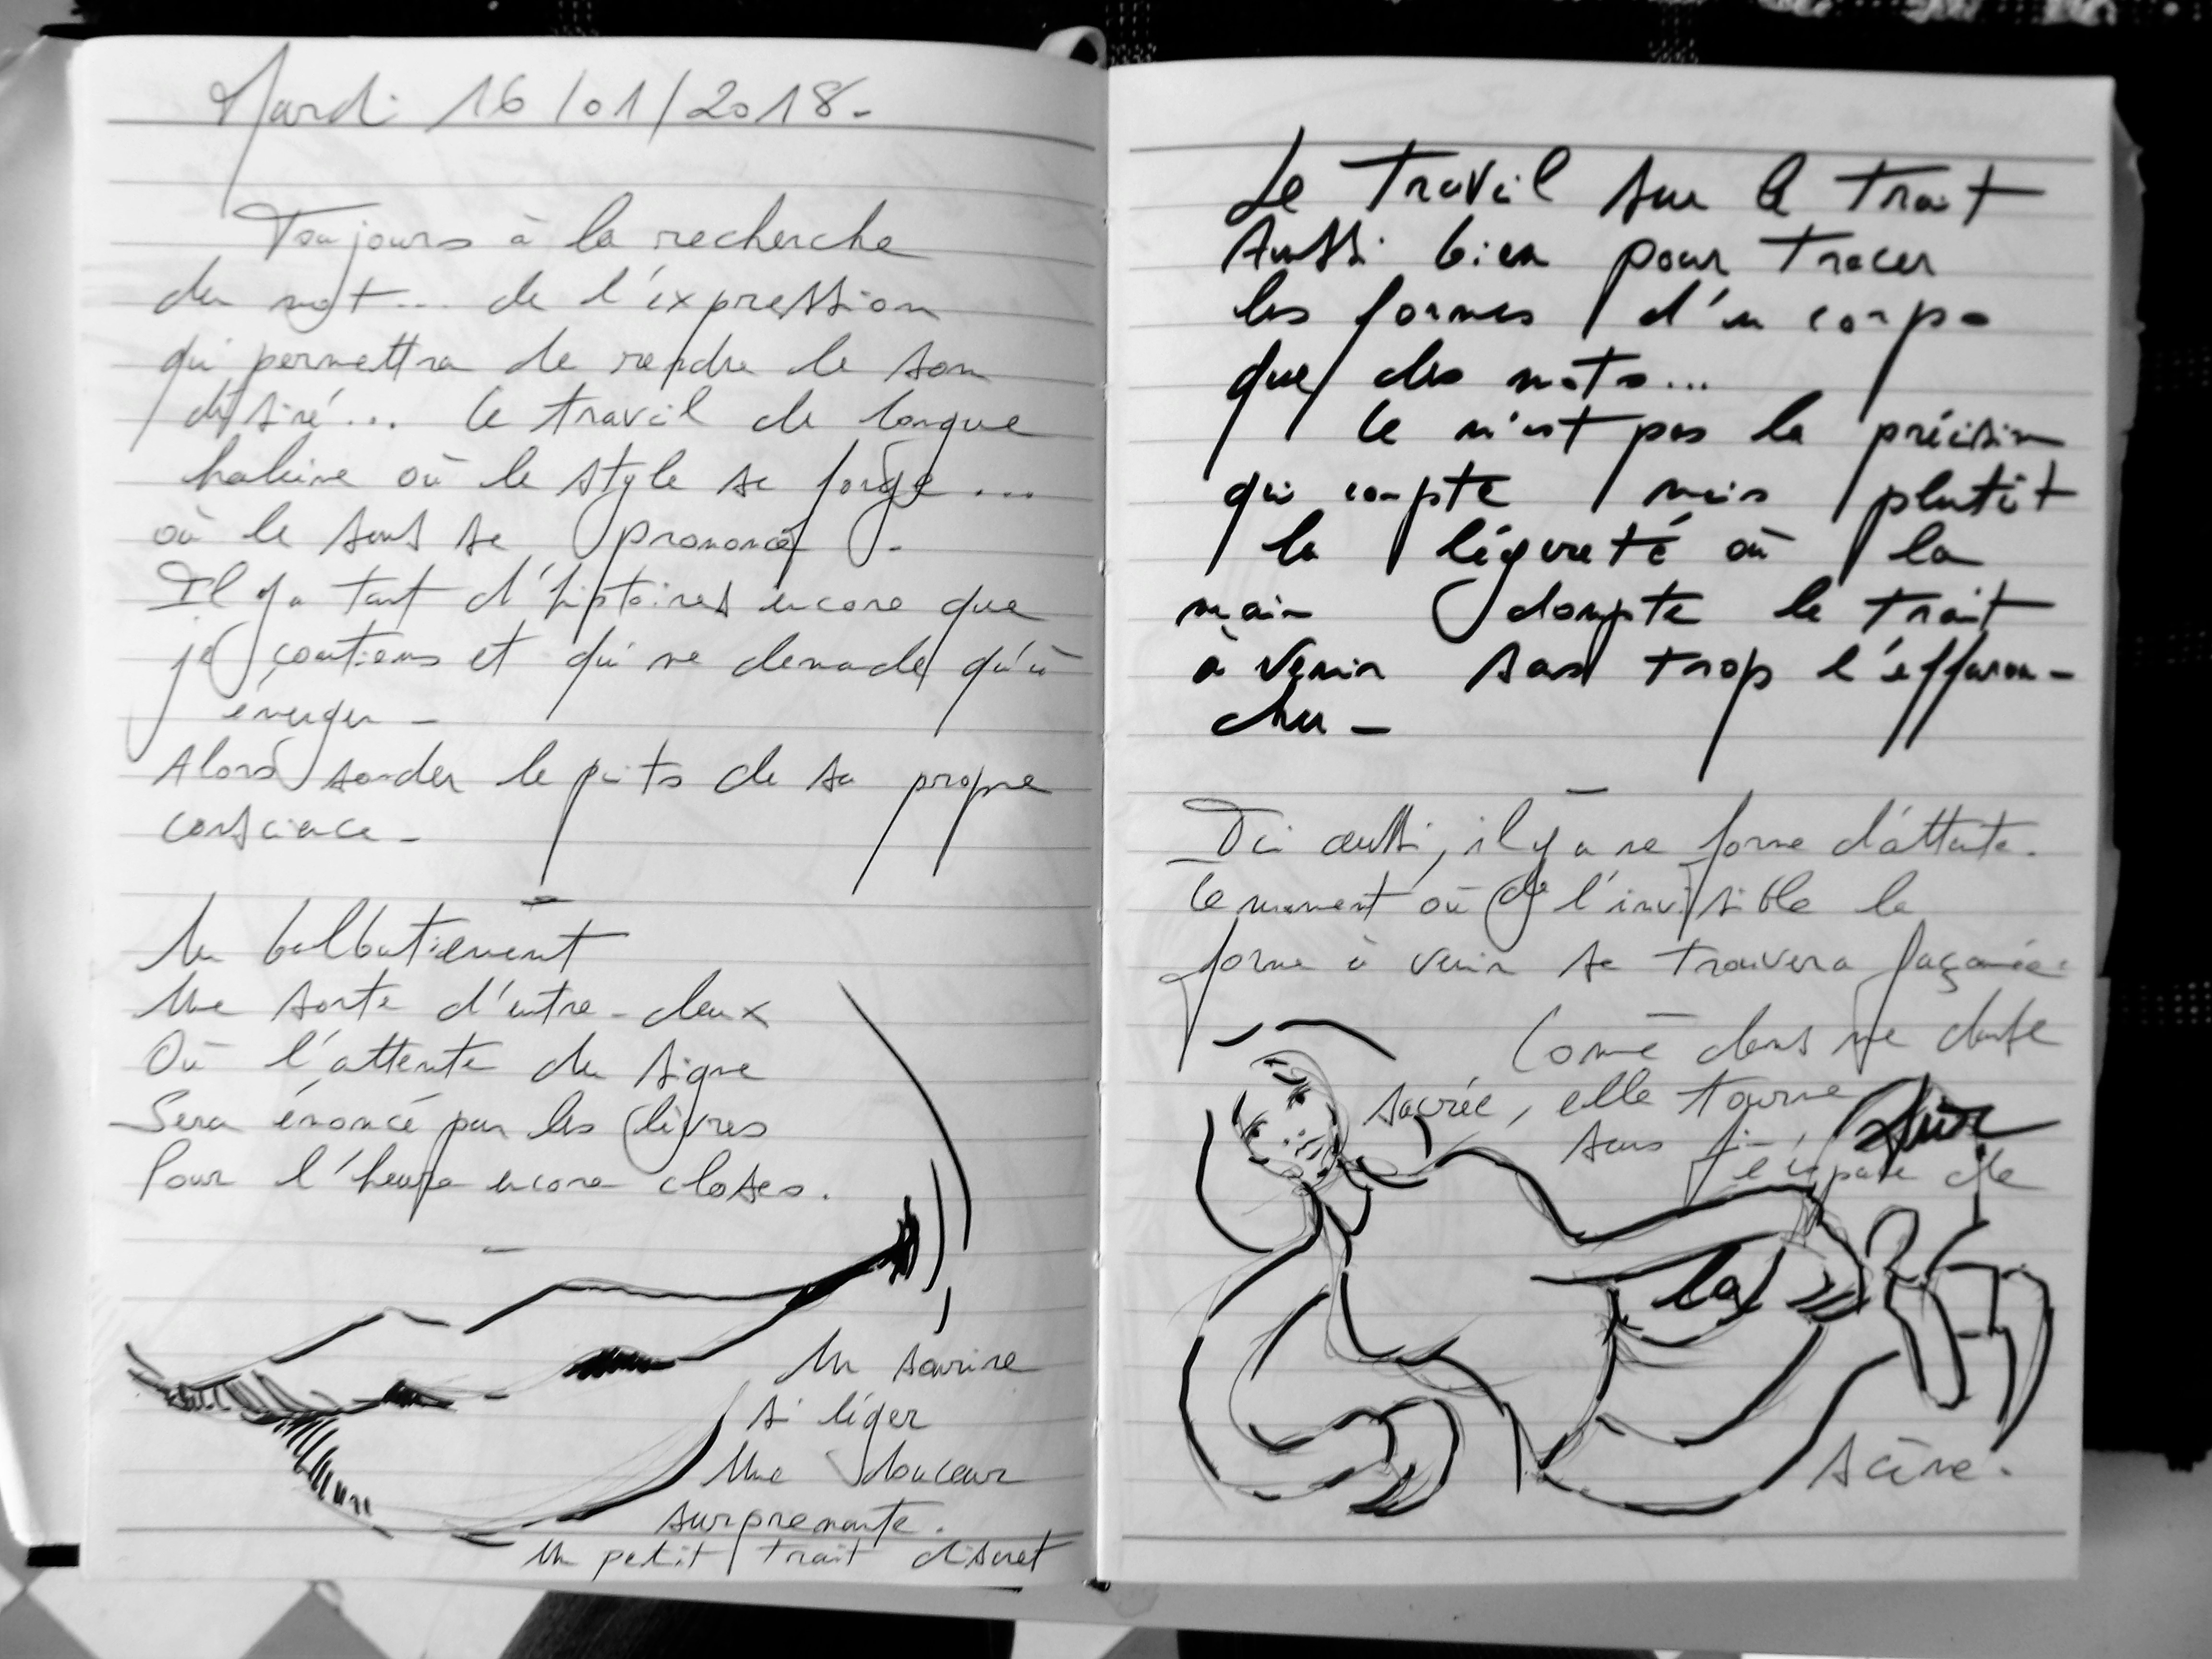 Mardi 16/01/2018.
Toujours à la recherche
du mot... de l'expression
qui permettra de rendre le son
désiré... Ce travail de longue
haleine où le style se forge...
où le sens se prononce.
Il y a tant d'histoires encore que
je contiens et qui ne demande qu'à
émerger -
Alors sonder le puits de sa propre
conscience -
Un balbutiement
Une sorte d'entre-deux
Où l'attente du signe
Sera énoncé par les lèvres
Pour l'heure encore closes.
Un sourire
si léger
Une douceur
surprenante.
Un petit trait discret
Le travail sur le trait
Aussi bien pour tracer
les formes d'un corps
que des mots...
Ce n'est pas la précision
qui compte mais plutôt
la légèreté où la
main dompte le trait
à venir sans trop l'effarou-
cher -
Ici aussi, il y a une forme d'attente.
Ce moment où de l'invisible la
forme à venir se trouvera façonnée.
Comme dans une danse
sacrée, elle tourne
sur
l'espace de
la
scène.